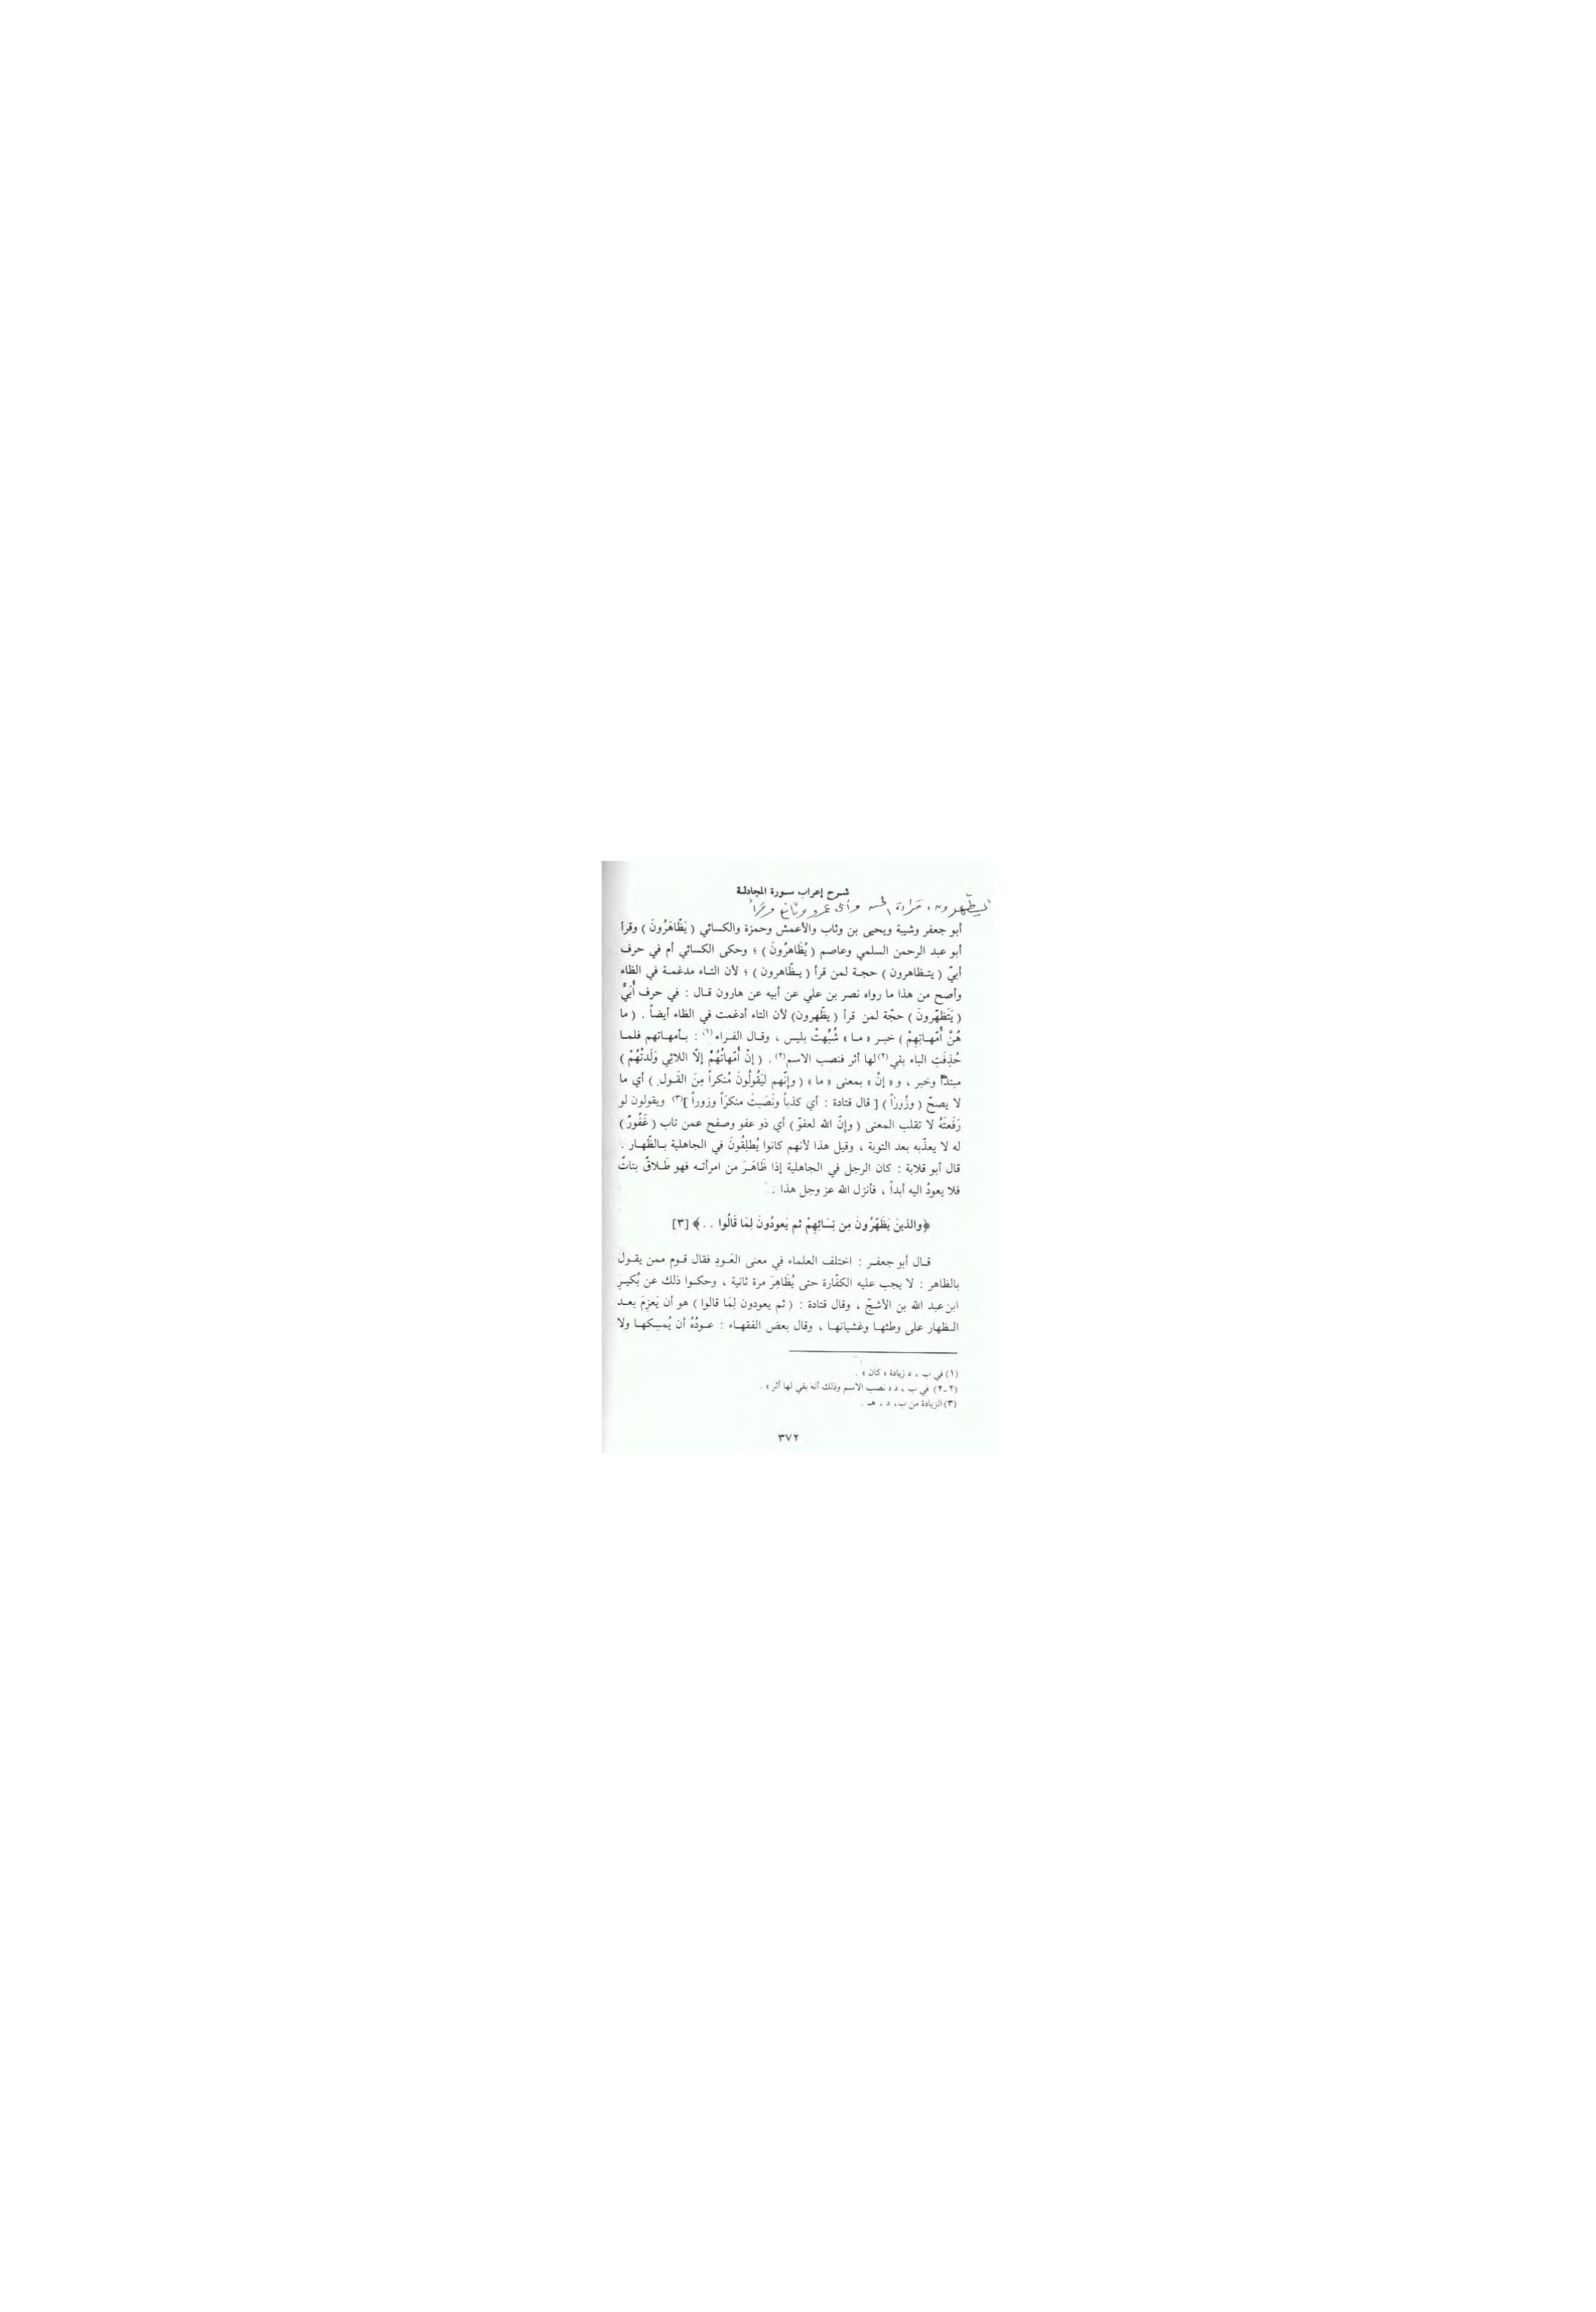 شرح إعراب سورة المجادلة
يظّهرون، قراءة الحسن وأبي عمرو ونافع وقرأ
أبو جعفر وشيبة ويحيى بن وثاب والأعمش وحمزة والكسائي ( يَظّاهَرُونَ ) وقرأ
أبو عبد الرحمن السلمي وعاصم ( يُظَاهرُونَ ) ؛ وحكى الكسائي أم في حرف
أبيّ ( يتظاهرون ) حجة لمن قرأ ( يظّاهرون ) ؛ لأن التاء مدغمة في الظاء
وأصح من هذا ما رواه نصر بن علي عن أبيه عن هارون قال : في حرف أُبَيٍّ
( يَتَظهّرونَ ) حجّة لمن قرأ ( يظّهرون) لأن التاء أدغمت في الظاء أيضاً . ( ما
هُنَّ أُمّهاتِهِمْ ) خبر « ما » شُبِّهتْ بليس ، وقال الفراء(١) : بأمهاتهم فلما
حُذِفَتِ الباء بقي(٢)لها أثر فنصب الاسم(٢) . ( إنّ أُمّهاتُهُمْ إلاّ اللائي وَلَدتْهُمْ )
مبتدأ وخبر ، و « إنْ » بمعنى « ما » ( وإنّهم ليَقُولُونَ مُنكراً مِنَ القَول ) أي ما
لا يصحّ ( وزُوراً ) [ قال قتادة : أي كذباً ونَصَبتَ منكرَاً وزوراً ](٣) ويقولون لو
رَفَعتَهُ لا تقلب المعنى ( وإنّ الله لعفوّ ) أي ذو عفو وصفح عمن تاب ( غَفُورٌ )
له لا يعذّبه بعد التوبة ، وقيل هذا لأنهم كانوا يُطلِقُونَ في الجاهلية بالظّهار .
قال أبو قلابة : كان الرجل في الجاهلية إذا ظَاهَرَ من امرأته فهو طَلاقٌ بتاتٌ
فلا يعودُ اليه أبداً ، فأنزل الله عز وجل هذا .
﴿والذينَ يَظَهّرُونَ مِن نِسَائِهِمْ ثم يَعودُونَ لِمَا قَالُوا . . ﴾ [٣]
قال أبو جعفر : اختلف العلماء في معنى العَودِ فقال قوم ممن يقول
بالظاهر : لا يجب عليه الكفّارة حتى يُظَاهِرَ مرة ثانية ، وحكوا ذلك عن بُكيرِ
ابن عبد الله بن الأشجّ ، وقال قتادة : ( ثم يعودون لِمَا قالوا ) هو أن يَعزِمَ بعد
الظهار على وطئها وغشيانها ، وقال بعض الفقهاء : عودُهُ أن يُمسِكها ولا
(١) في ب ، د زيادة « كان » .
(٢-٢) في ب ، د « نصب الاسم وذلك أنه بقي لها أثر » .
(٣) الزيادة من ب، د ، هـ .
٣٧٢